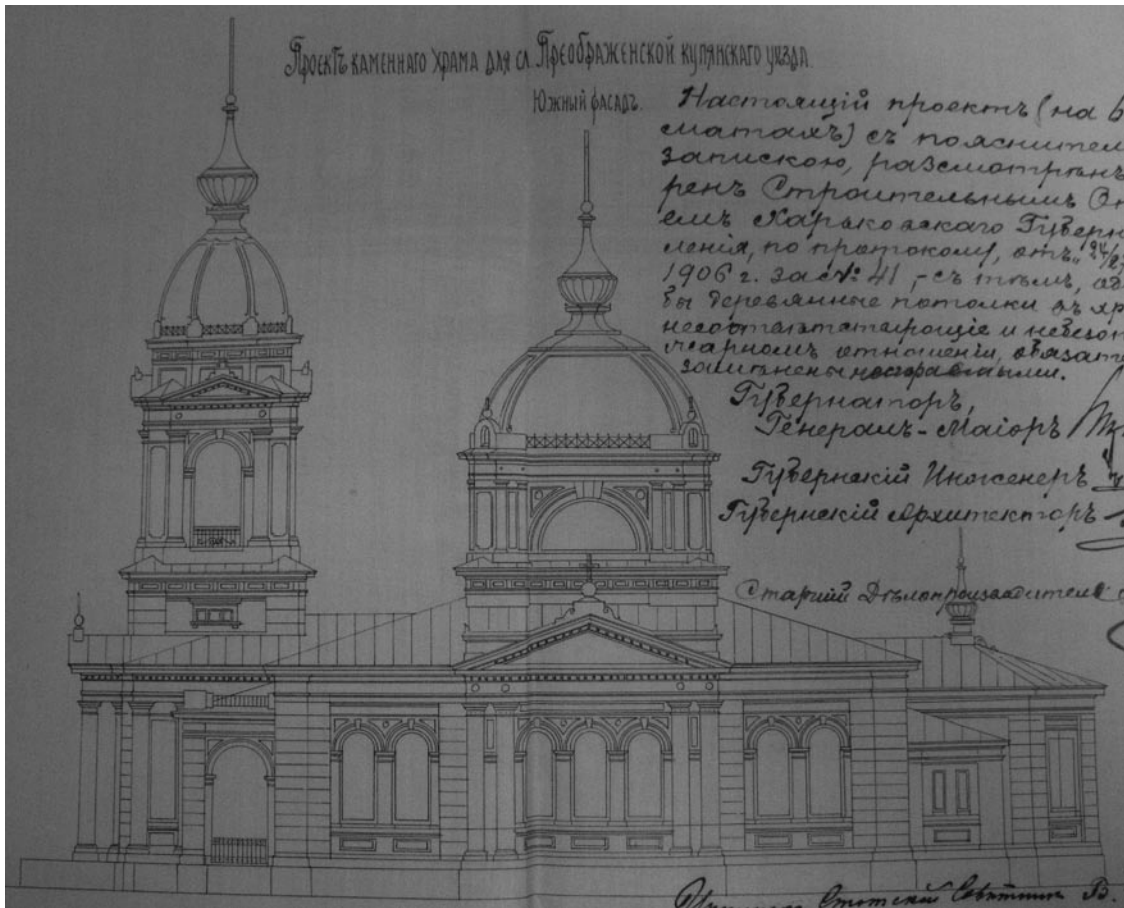 Проектъ каменнаго храма для сл. Преображенской купянскаго уѣзда.
Южный фасадъ.
Настоящій проектъ (на 6
матахъ) съ пояснител
запискою, разсмотрѣнъ
ренъ Строительнымъ От
емъ Харьковскаго Губерн
ленія, по протоколу, отъ
1906 г. за № 41, - съ тѣмъ,
бы деревянные потолки въ
и небезоп
жарномъ отношеніи, обязат
замѣнены несгораемыми.
Губернаторъ,
Генералъ-Маіоръ
Губернскій Инженеръ
Губернскій Архитекторъ
Старшій Дѣлопроизводитель
Статскій Совѣтникъ В.